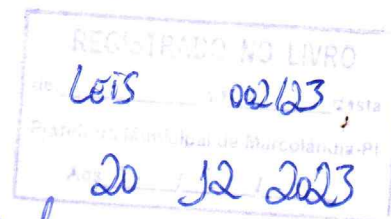 REGISTRADO NO LIVRO
de LEIS 002/23 desta
Prefeitura Municipal de Marcolândia-PI
Aos 20 / 12 / 2023